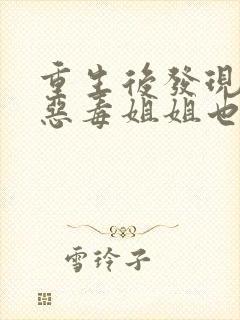 重生後發現
惡毒姐姐也
雪玲子